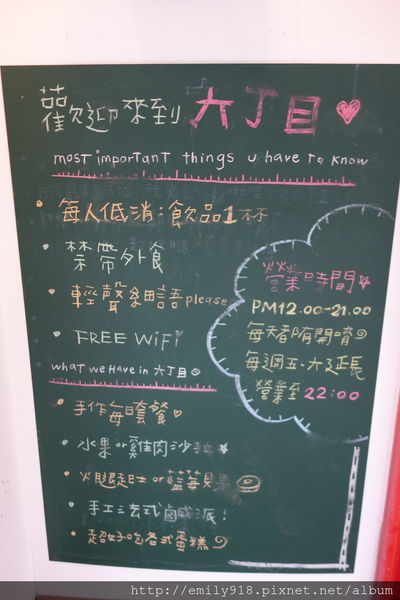 歡迎來到 六丁目
most important things u have to know
每人低消:飲品1杯
禁帶外食
輕聲細語please
FREE WiFi
營業時間
PM12.00-21.00
每天都有開唷
每週五.六延長
營業至22:00
what we Have in 六丁目
手作每日套餐
水果or雞肉沙拉
火腿起士or藍莓貝果
手工法式鹹派!
超好吃各式蛋糕
http://emily918.pixnet.net/album